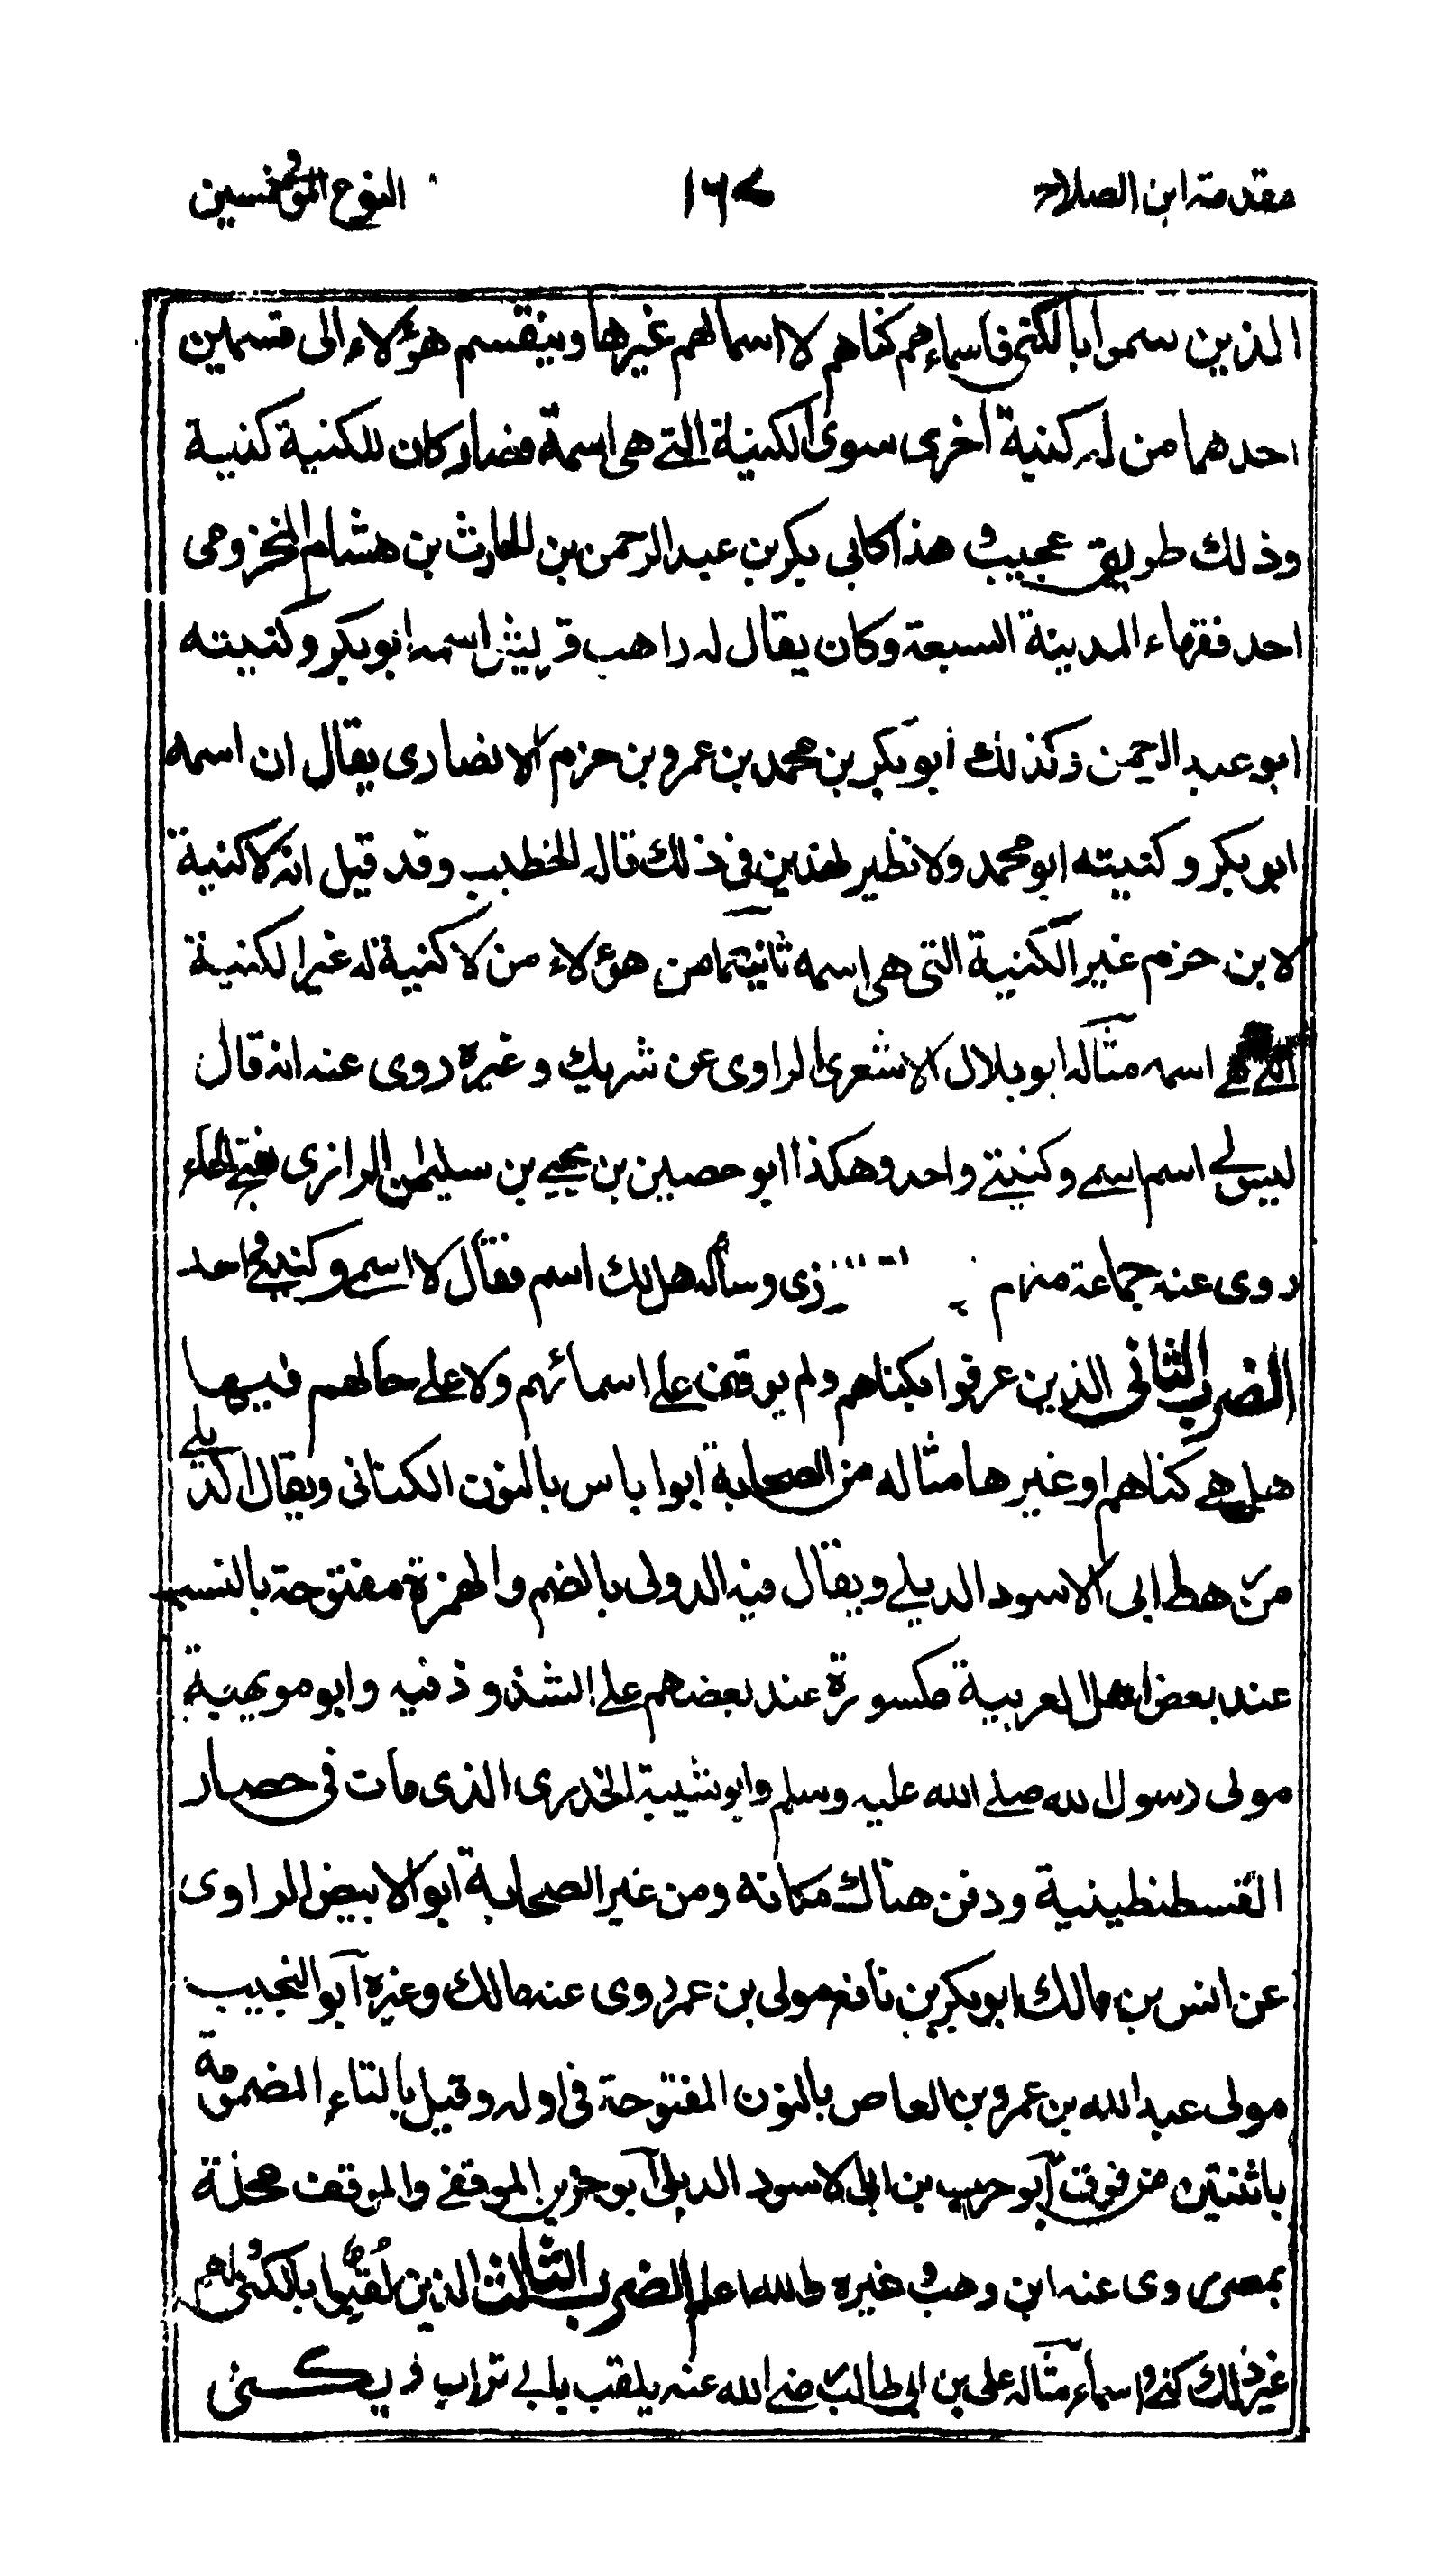 مقدمة ابن الصلاح ١٦٧ النوع الموفى خمسين
الذين سموا بالكنى فاسماءهم كناهم لا اسما لهم غيرها وينقسم هؤلاء الى قسمين
احدهما من له كنية اخرى سوى الكنية التى هى اسمه فصار كان للكنية كنية
وذلك طريق عجيب و هذا كابى بكر بن عبد الرحمن بن الحارث بن هشام المخزومى
احد فقهاء المدينة السبعة وكان يقال له راهب قريش اسمه ابو بكر وكنيته
ابو عبد الرحمن وكذلك ابو بكر بن محمد بن عمرو بن حزم الانصارى يقال ان اسمه
ابو بكر وكنيته ابو محمد ولا نظير لهذين فى ذلك قاله الخطيب وقد قيل انه لا كنية
لابن حزم غير الكنية التى هى اسمه ثانيهما من هؤلاء من لا كنية له غير الكنية
التى هى اسمه مثاله ابو بلال الاشعرى الراوى عن شريك وغيره روى عنه انه قال
ليس لى اسم اسمى وكنيتى واحد وهكذا ابو حصين بن يحيى بن سليمن الرازى بفتح الحاء
روى عنه جماعة منهم زى وسأله هل لك اسم فقال لا اسمى وكنيتى واحد
الضرب الثانى الذين عرفوا بكناهم ولم يوقف على اسمائهم ولا على حالهم فيها
هل هى كناهم او غيرها مثاله من الصحابة ابو اياس بالنون الكنانى ويقال الديلى
من رهط ابى الاسود الديلى ويقال فيه الدولى بالضم والهمزة مفتوحة بالنسب
عند بعض اهل العربية مكسورة عند بعضهم على الشذوذ فيه وابو مويهبة
مولى رسول الله صلى الله عليه وسلم وابو شيبة الخدرى الذى مات فى حصار
القسطنطينية ودفن هناك مكانه ومن غير الصحابة ابو الابيض الراوى
عن انس بن مالك ابو بكر بن نافع مولى بن عمر روى عنه مالك وغيره ابو النجيب
مولى عبد الله بن عمرو بن العاص بالنون المفتوحة فى اوله وقيل بالتاء المضمومة
باثنتين من فوق ابو حرب بن ابى الاسود الديلى ابو حريز الموقفى والموقف محلة
بمصر روى عنه ابن وهب وغيره والله اعلم الضرب الثالث الذين لقبوا بالكنى ولهم
غير ذلك كنى واسماء مثاله على بن ابى طالب رضى الله عنه يلقب بابى تراب ويكنى